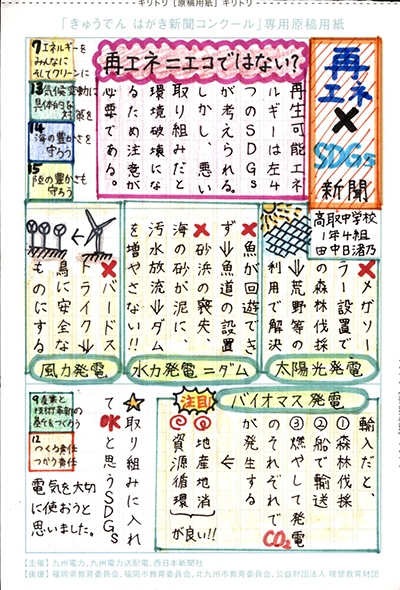 キリトリ【原稿用紙】キリトリ
「きゅうでん はがき新聞コンクール」専用原稿用紙
再エネ×SDGs新聞
高取中学校
1年4組
田中日渚乃
再エネ＝エコではない？
再生可能エネ
ルギーは左4
つのSDGs
が考えられる。
しかし、悪い
取り組みだと
環境破壊にな
るため注意が
必要である。
7エネルギーを
みんなに
そしてクリーンに
13気候変動に
具体的な
対策を
14
海の豊かさを
守ろう
15
陸の豊かさも
守ろう
太陽光発電
×メガソー
ラー設置で
の森林伐採
⇒荒野等の
利用で解決
水力発電＝ダム
×魚が回遊でき
ず⇒魚道の設置
×砂浜の喪失、
海の砂が泥に、
汚水放流⇒ダム
を増やさない!!
風力発電
×バードス
トライク⇒
鳥に安全な
ものにする
バイオマス発電
輸入だと、
①森林伐採
②船で輸送
③燃やして発電
のそれぞれでCO2
が発生する
←
注目
◎地産地消
◎資源循環
が良い!!
★取り組みに入れ
てOKと思うSDGs
9産業と
技術革新の
基盤をつくろう
12
つくる責任
つかう責任
電気を大切
に使おうと
思いました。
【主催】九州電力、九州電力送配電、西日本新聞社
【後援】福岡県教育委員会、福岡市教育委員会、北九州市教育委員会、公益財団法人 理想教育財団